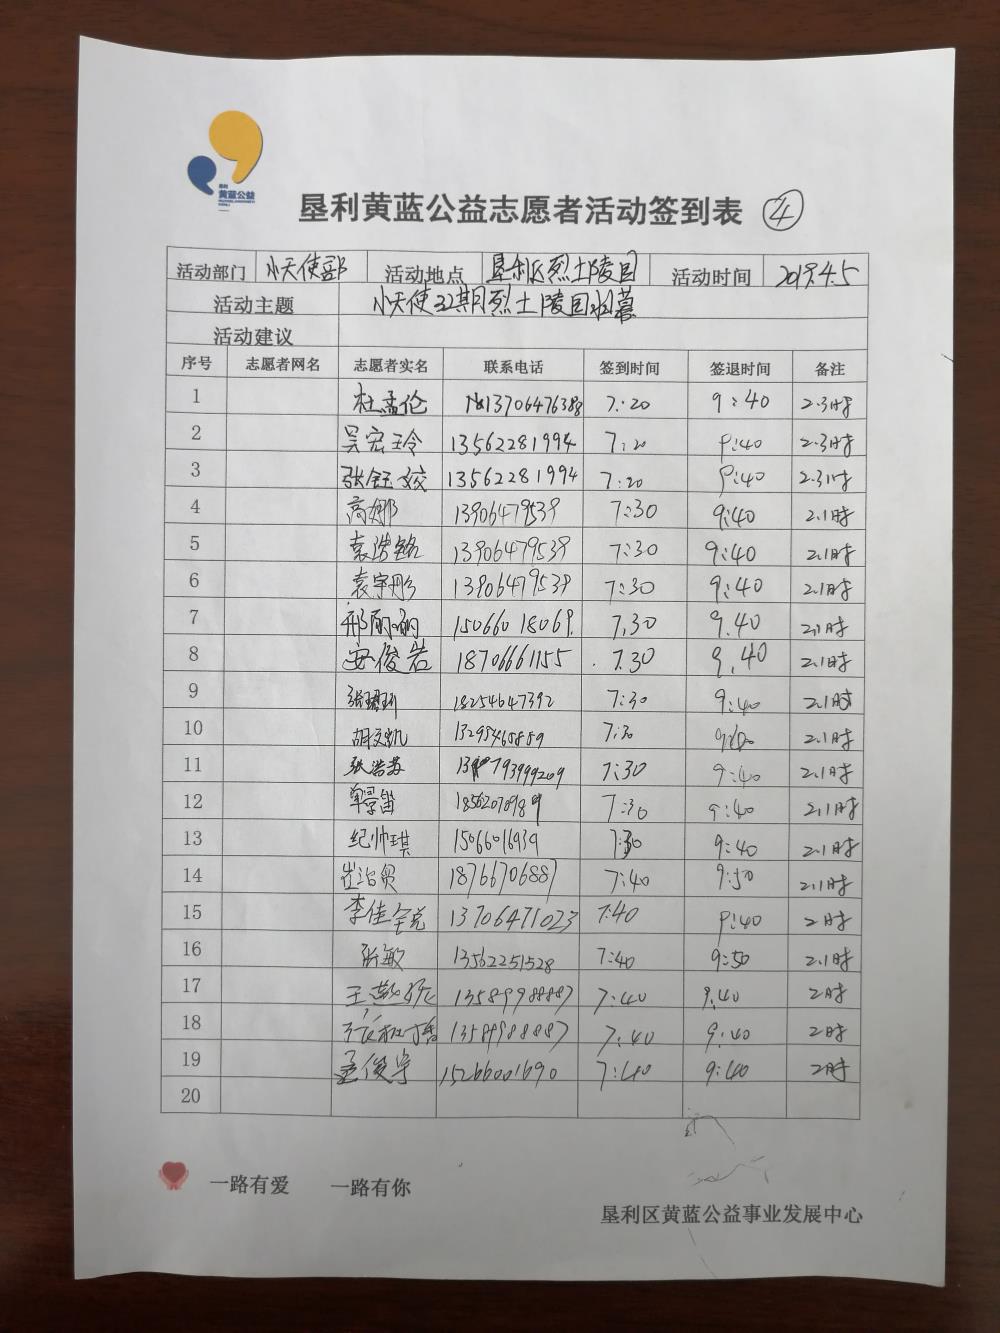 垦利
黄蓝公益
垦利黄蓝公益志愿者活动签到表 ④
活动部门 小天使部 活动地点 垦利区烈士陵园 活动时间 2019.4.5
活动主题 小天使32期烈士陵园扫墓
活动建议
序号 志愿者网名 志愿者实名 联系电话 签到时间 签退时间 备注
1 杜孟伦 13706476388 7:20 9:40 2.3时
2 吴宏玲 13562281994 7:20 9:40 2.3时
3 张钰姣 13562281994 7:20 9:40 2.3时
4 高娜 13906479539 7:30 9:40 2.1时
5 袁浩铭 13906479539 7:30 9:40 2.1时
6 袁宇彤 13906479539 7:30 9:40 2.1时
7 邢丽丽 15066018069 7.30 9.40 2.1时
8 安俊岩 18706661155 7.30 9.40 2.1时
9 18254647392 7:30 9:40 2.1时
10 胡文凯 13295465859 7:30 9:40 2.1时
11 张浩苏 7:30 9:40 2.1时
12 7:30 9:40 2.1时
13 纪帅琪 15066016939 7:30 9:40 2.1时
14 18766706887 7:40 9:50 2.1时
15 李佳 13706471023 7:40 9:40 2时
16 张敏 13562251528 7:40 9:50 2.1时
17 13589988887 7:40 9.40 2时
18 13589988887 7:40 9:40 2时
19 孟俊宇 15266001690 7:40 9:40 2时
20
一路有爱 一路有你
垦利区黄蓝公益事业发展中心